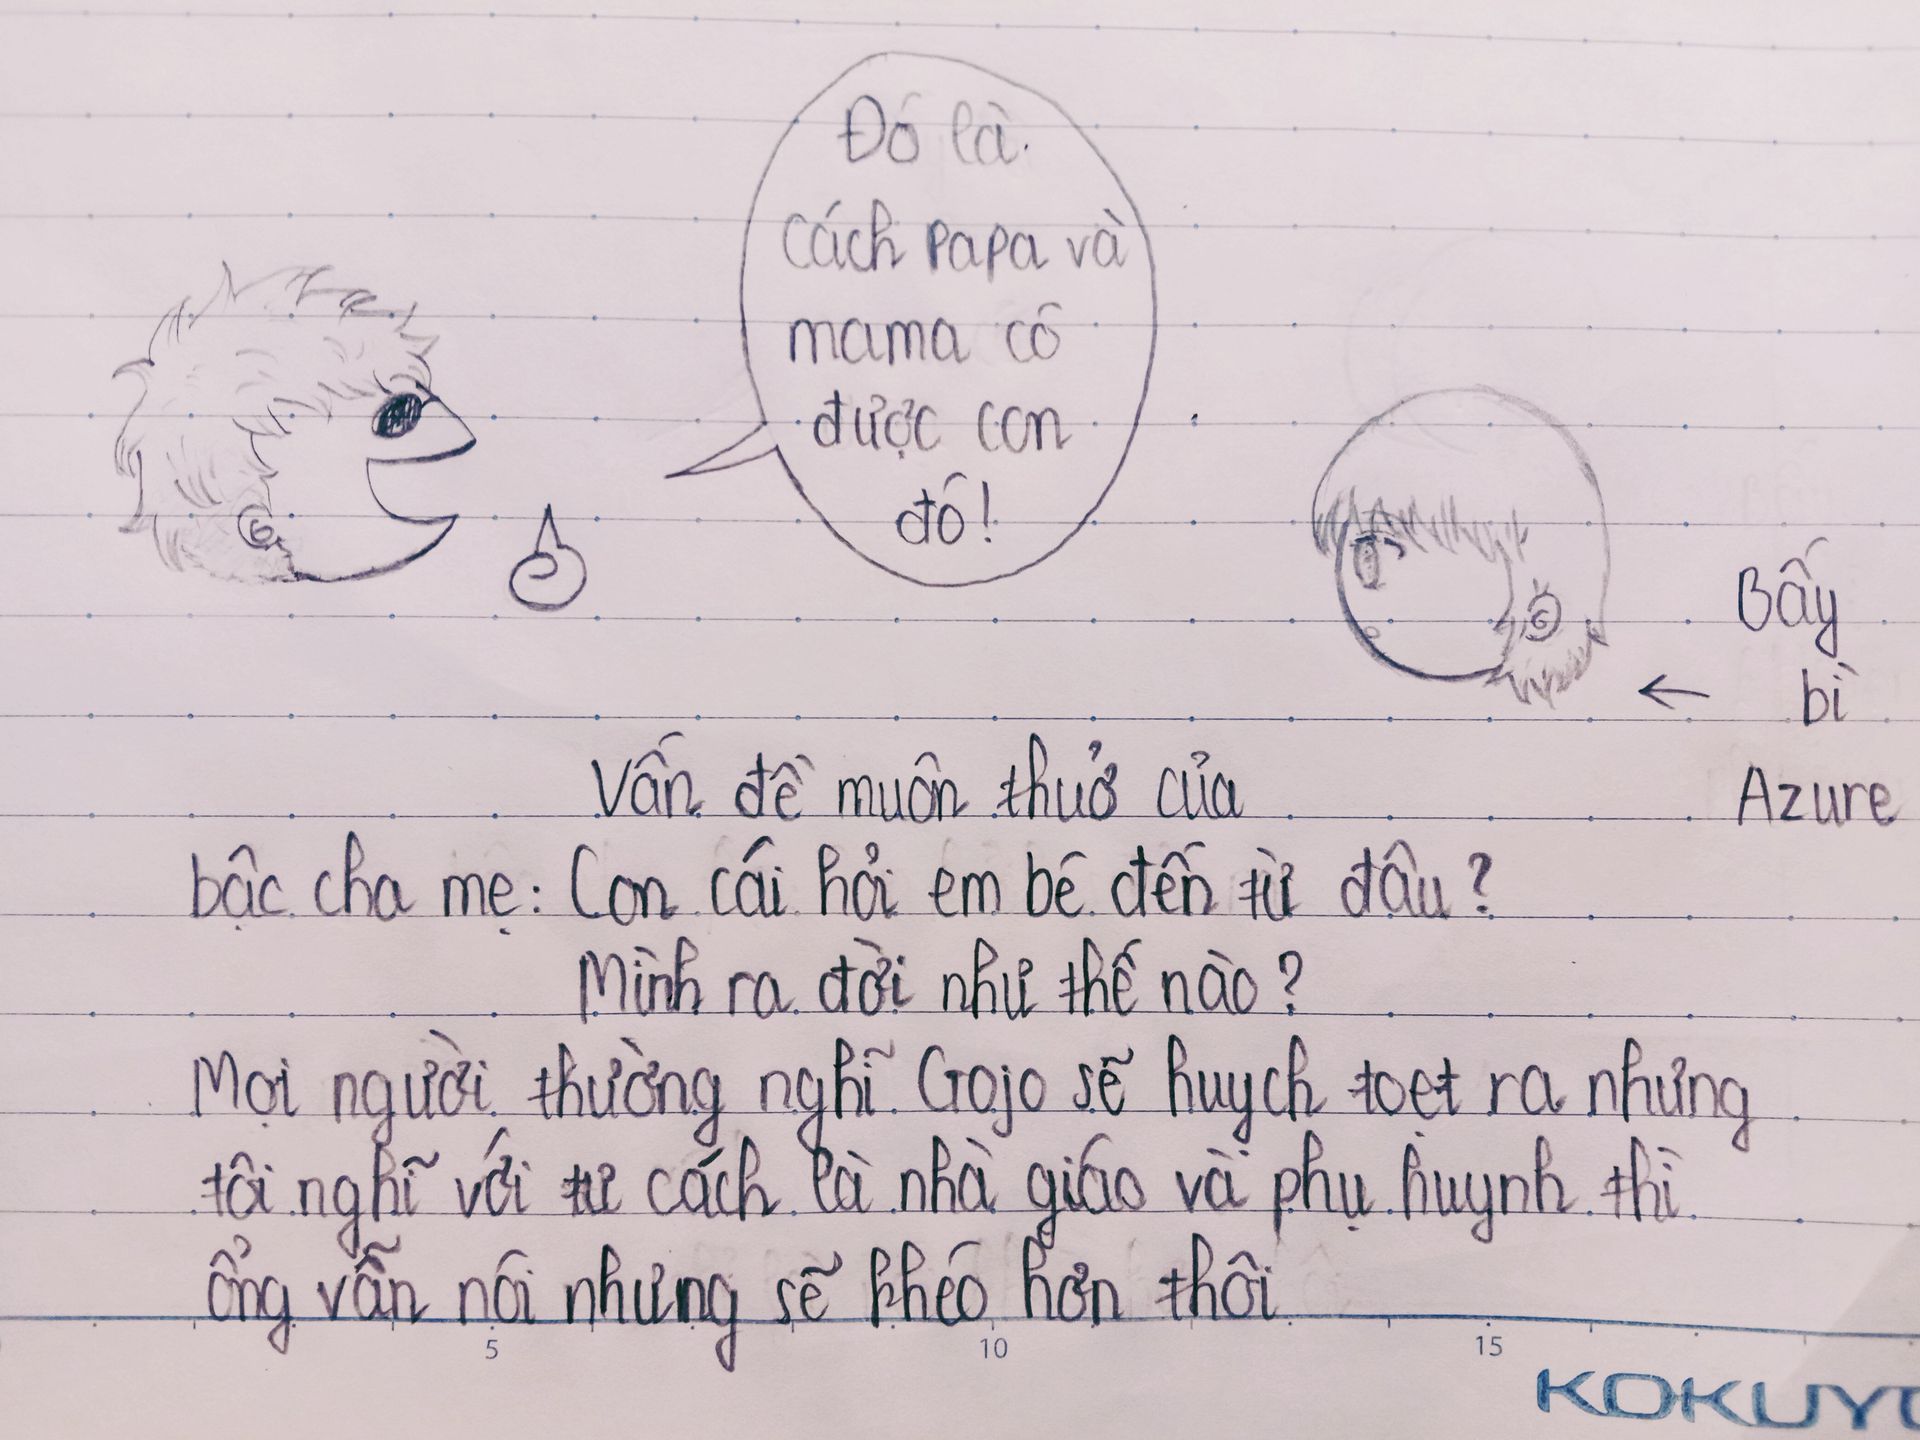 Đó là
Cách papa và
mama có
được con
đó!
Bấy
bì
Azure
Vấn đề muôn thuở của
bậc cha mẹ: Con cái hỏi em bé đến từ đâu?
Mình ra đời như thế nào?
Mọi người thường nghĩ Gojo sẽ huỵch toẹt ra nhưng
tôi nghĩ với tư cách là nhà giáo và phụ huynh thì
ổng vẫn nói nhưng sẽ khéo hơn thôi
5 10 15
KOKUYO